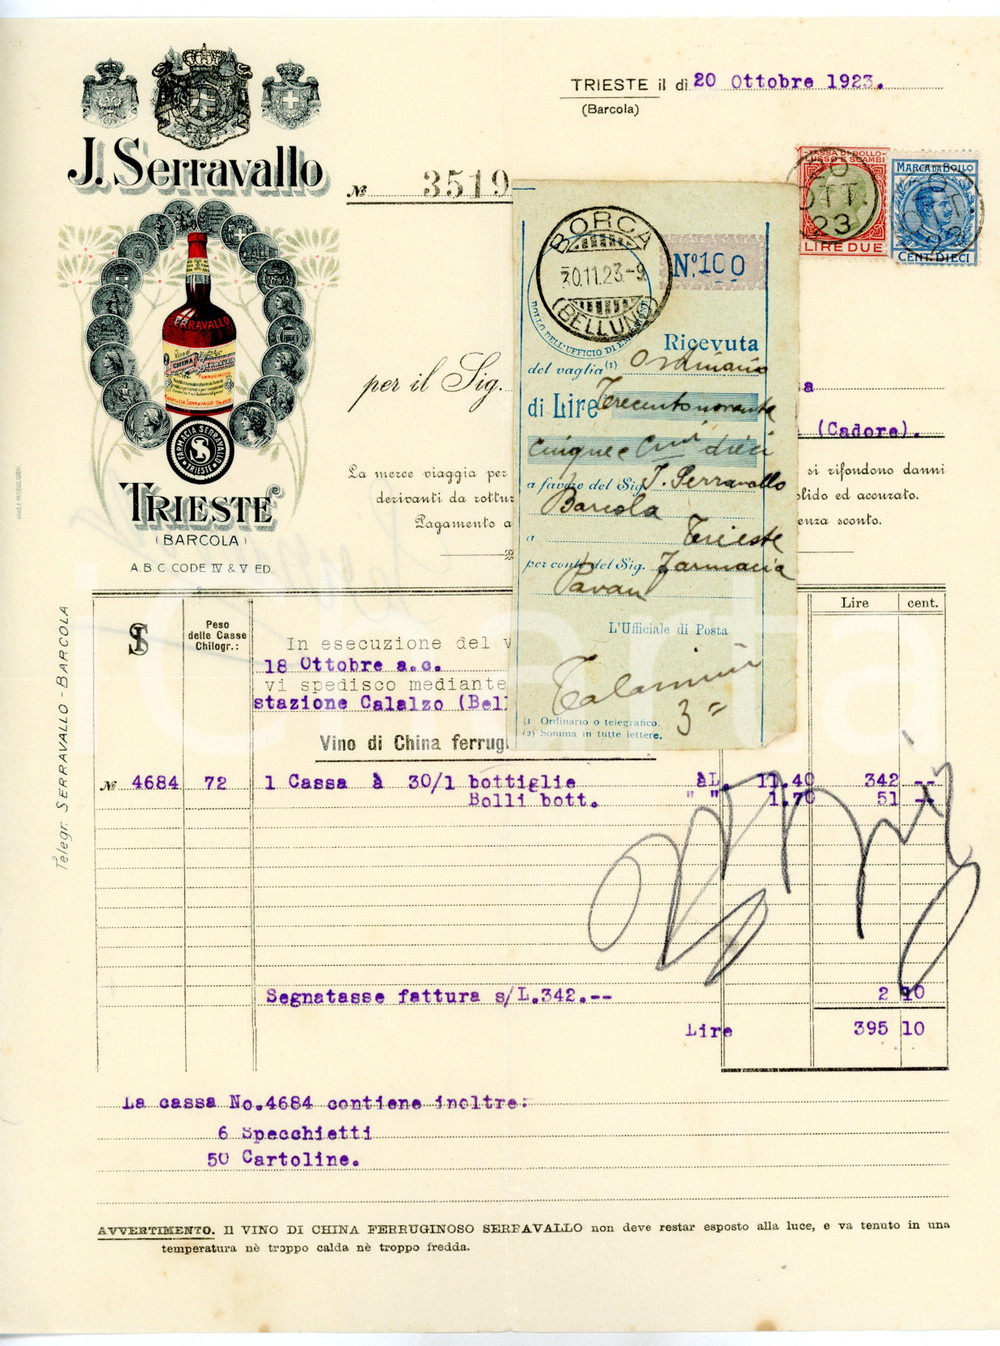 TRIESTE il di 20 Ottobre 1923.
(Barcola)
J. Serravallo
№ 3519
TASSA DI BOLLO
LUSSO E SCAMBI
LIRE DUE
20 OTT. 23
MARCA DA BOLLO
CENT. DIECI
SERRAVALLO
CHINA
FARMACIA SERRAVALLO
TRIESTE
TRIESTE
(BARCOLA)
A.B.C. CODE IV & V ED.
per il Sig.
a
(Cadore).
La merce viaggia per
si rifondono danni
derivanti da rottur
lido ed accurato.
Pagamento a
enza sconto.
BORCA
30.11.23.-9
(BELLUNO)
BOLLO DELL'UFFICIO DI
N.º 100
Ricevuta
del vaglia (1) Ordinario
di Lire Trecentonovanta
cinque e cmi dieci
a favore del Sig. J. Serravallo
Barcola
a Trieste
per conto del Sig. Farmacia
Pavan
L'Ufficiale di Posta
3=
(1 Ordinario o telegrafico.
(2) Somma in tutte lettere.
Telegr. SERRAVALLO - BARCOLA
Peso
delle Casse
Chilogr.:
Lire cent.
In esecuzione del v
18 Ottobre a.c.
vi spedisco mediante
stazione Calalzo (Bel
Vino di China ferrug
№ 4684 72 1 Cassa à 30/1 bottiglie àL. 11.40 342 --
Bolli bott. " " 1.70 51 --
Segnatasse fattura s/L.342.-- 2 10
Lire 395 10
La cassa No.4684 contiene inoltre:
6 Specchietti
50 Cartoline.
AVVERTIMENTO. Il VINO DI CHINA FERRUGINOSO SERRAVALLO non deve restar esposto alla luce, e va tenuto in una
temperatura nè troppo calda nè troppo fredda.